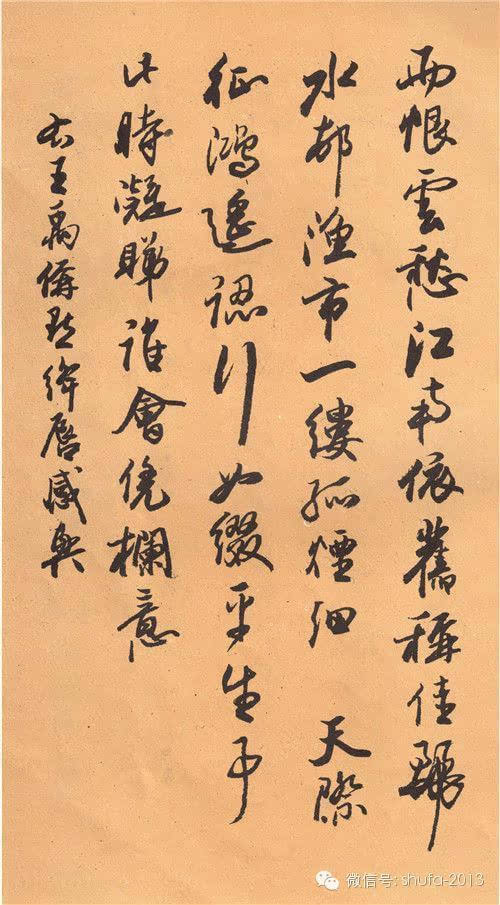 雨恨雲愁江南依舊稱佳麗
水邨漁市一縷孤煙細 天際
征鴻遙認行如綴平生事
此時凝睇誰會凭欄意
右王禹偁點絳唇感興
微信号: shufa-2013